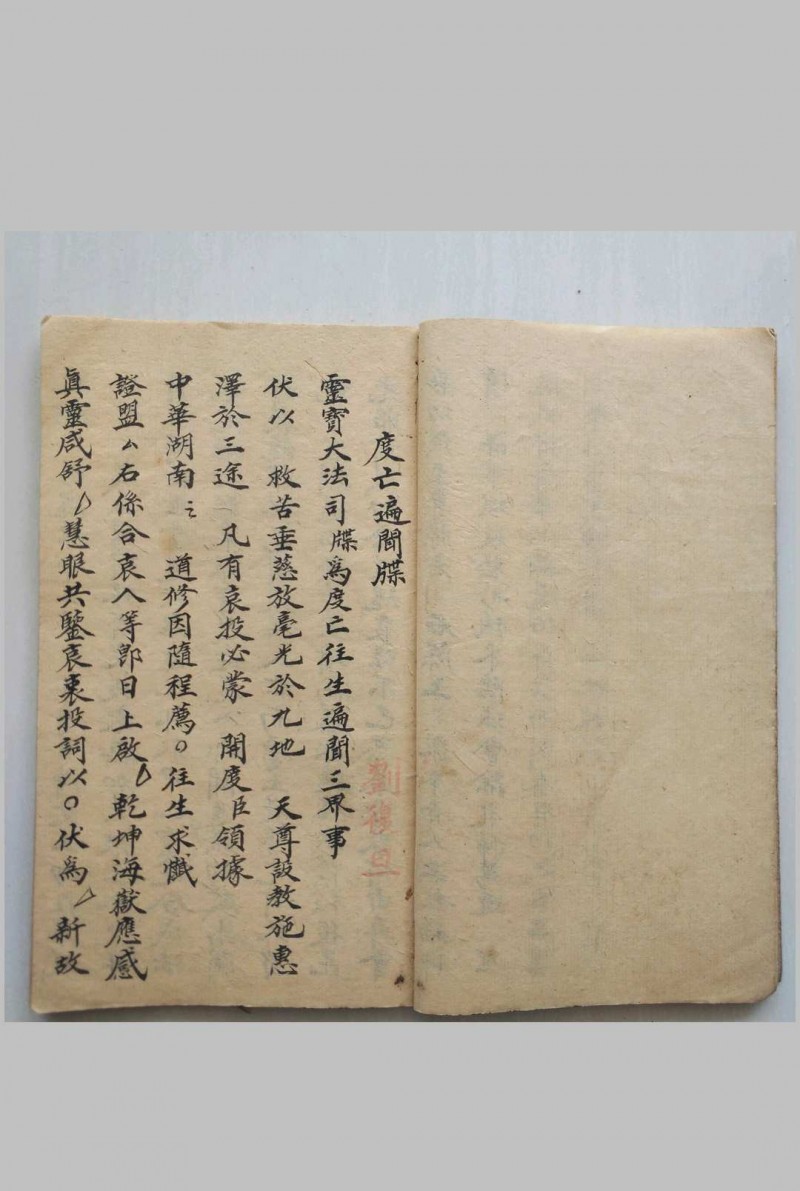 度亡遍聞牒
靈寶大法司 牒為度亡往生遍聞三界事
伏以 救苦垂慈放毫光於九地 天尊設教施惠
澤於三途 凡有哀投必蒙 開度臣領據
中華湖南 道修因隨程薦〇往生求懺
證盟厶右係合哀人等即日上啟 乾坤海嶽應感
真靈咸舒 慧眼共鑒哀衷投詞以〇伏為 新故
劉積旦